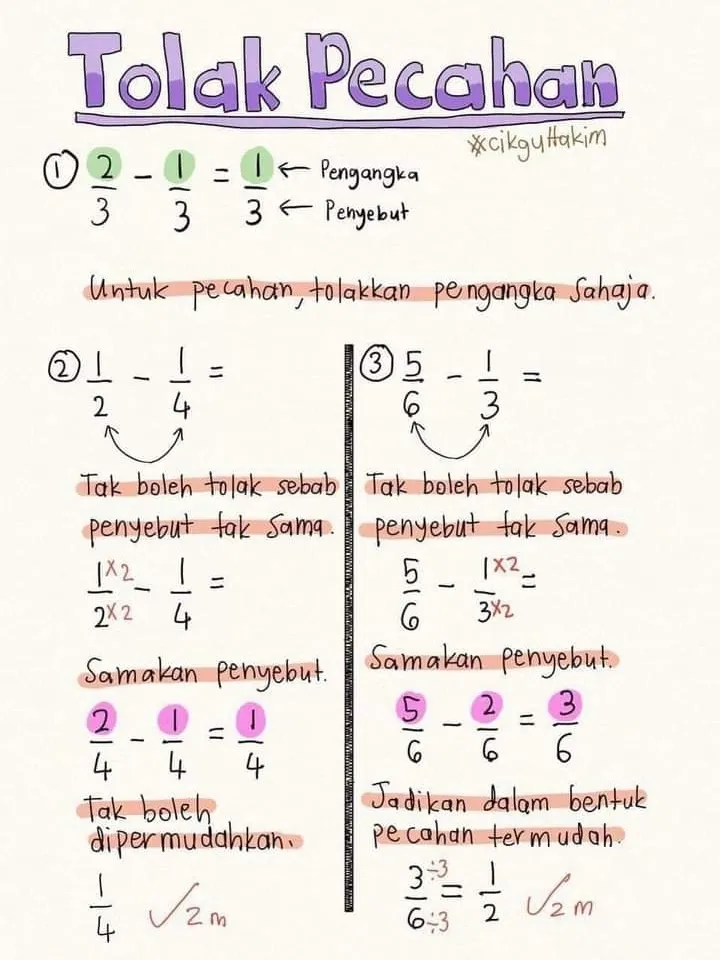 Tolak Pecahan
#cikguHakim
① 2/3 - 1/3 = 1/3 ← Pengangka
← Penyebut
Untuk pecahan, tolakkan pengangka sahaja.
② 1/2 - 1/4 =
Tak boleh tolak sebab
penyebut tak sama.
1×2/2×2 - 1/4 =
Samakan penyebut.
2/4 - 1/4 = 1/4
Tak boleh
dipermudahkan.
1/4 √2m
③ 5/6 - 1/3 =
Tak boleh tolak sebab
penyebut tak sama.
5/6 - 1×2/3×2 =
Samakan penyebut.
5/6 - 2/6 = 3/6
Jadikan dalam bentuk
pecahan termudah.
3÷3/6÷3 = 1/2 √2m